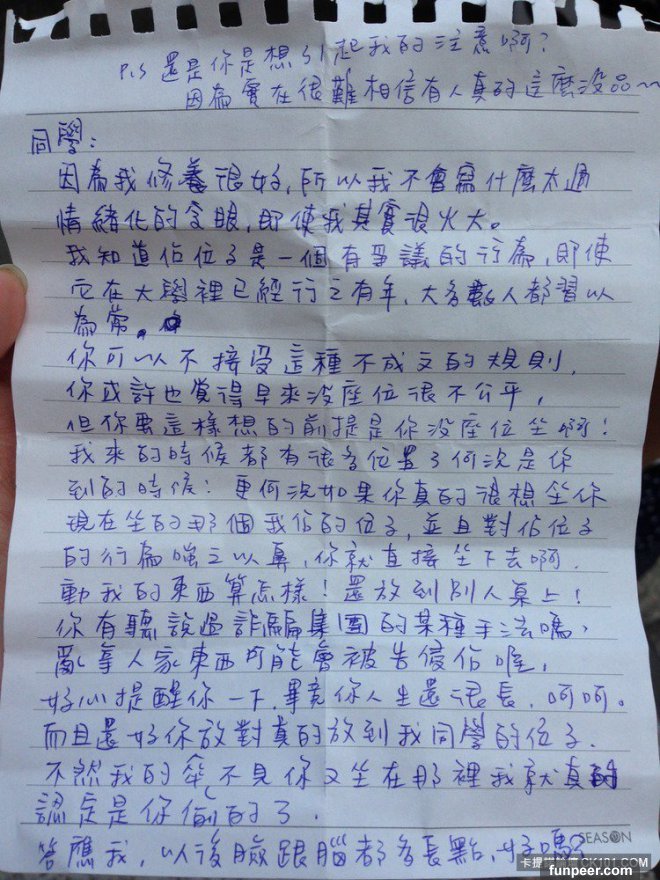 P.S 還是你是想引起我的注意啊?
因為實在很難相信有人真的這麼沒品~
同學:
因為我修養很好,所以我不會寫什麼太過
情緒化的字眼,即使我其實很火大。
我知道佔位子是一個有爭議的行為,即使
它在大學裡已經行之有年,大多數人都習以
為常。
你可以不接受這種不成文的規則,
你或許也覺得早來沒座位很不公平,
但你要這樣想的前提是你沒座位坐啊!
我來的時候都有很多位置了何況是你
到的時候!更何況如果你真的很想坐你
現在坐的那個我佔的位子,並且對佔位子
的行為嗤之以鼻,你就直接坐下去啊.
動我的東西算怎樣!還放到別人桌上!
你有聽說過詐騙集團的某種手法嗎,
亂拿人家東西可能會被告侵佔喔,
好心提醒你一下,畢竟你人生還很長,呵呵。
而且還好你放對真的放到我同學的位子.
不然我的傘不見你又坐在那裡我就真的
認定是你偷的了.
答應我,以後臉跟腦都多長點,好嗎?
SEASON
CK101.COM
funpeer.com